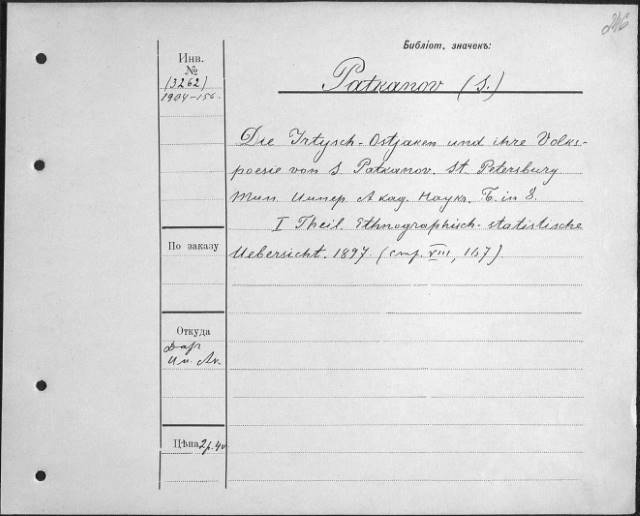 246
Библіот. значекъ:
Инв.
№
(3262)
1904-156.
Patkanov (S.)
Die Irtysch-Ostjaken und ihre Volks-
poesie von S. Patkanov. St. Petersburg
Тип. Импер. Акад. Наукъ. Б. in 8.
I Theil. Ethnographisch-statistische
Uebersicht. 1897. (стр. VIII, 167).
По заказу
Откуда
Дар
Им. Ак.
Цѣна 2 р. 40